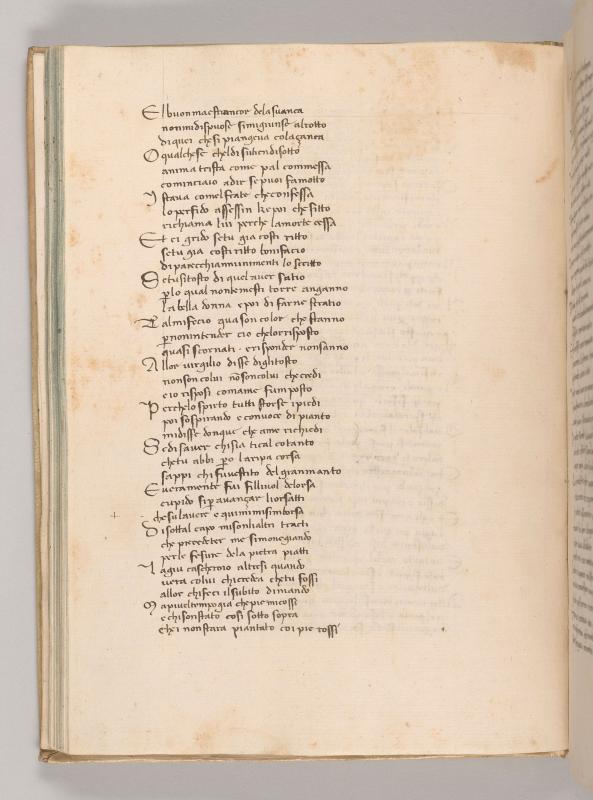 El buon maestrancor dela suanca
non mi dispuose si mi giunse al rotto
di quei che si piangeua cola çanca
O qual che se chel di su tien di sotto
anima trista come pal commessa
cominciaio adir se puoi fa motto
I staua comel frate che confessa
lo perfido assessin ke poi che fitto
richiama lui perche la morte cessa
Et ei grido se tu gia costi ritto
se tu gia costi ritto bonifacio
di parecchi anni mi menti lo scritto
Se tu si tosto di quel auer satio
per lo qual non temesti torre anganno
la bella donna e poi di farne stratio
Tal mi fecio quason color che stanno
per non intender cio chelor risposto
quasi scornati · e risponder non sanno
Allor uirgilio disse digli tosto
non son colui non son colui che credi
e io risposi comame fu imposto
Perche lo spirto tutti storse i piedi
poi sospirando e con uoce di pianto
mi disse donque che ame richiedi
Se di sauer chi sia ti cal cotanto
che tu abbi pero la ripa corsa
sappi chi fu uestito del gran manto
E ueramente fui filliuol de lorsa
cupido si per auançar li orsatti
che su lauere e qui mi misi in borsa
Di sottal capo mi son li altri tracti
che preceder me simoneggiando
per le fesure de la pietra piatti
La giu cascheroio altresi quando
uera colui chi credea che tu fossi
allor chi feci il subito dimando
Ma piu el tempo gia che pie mi cossi
e chi son stato cosi sotto sopra
chei non stara piantato coi pie rossi